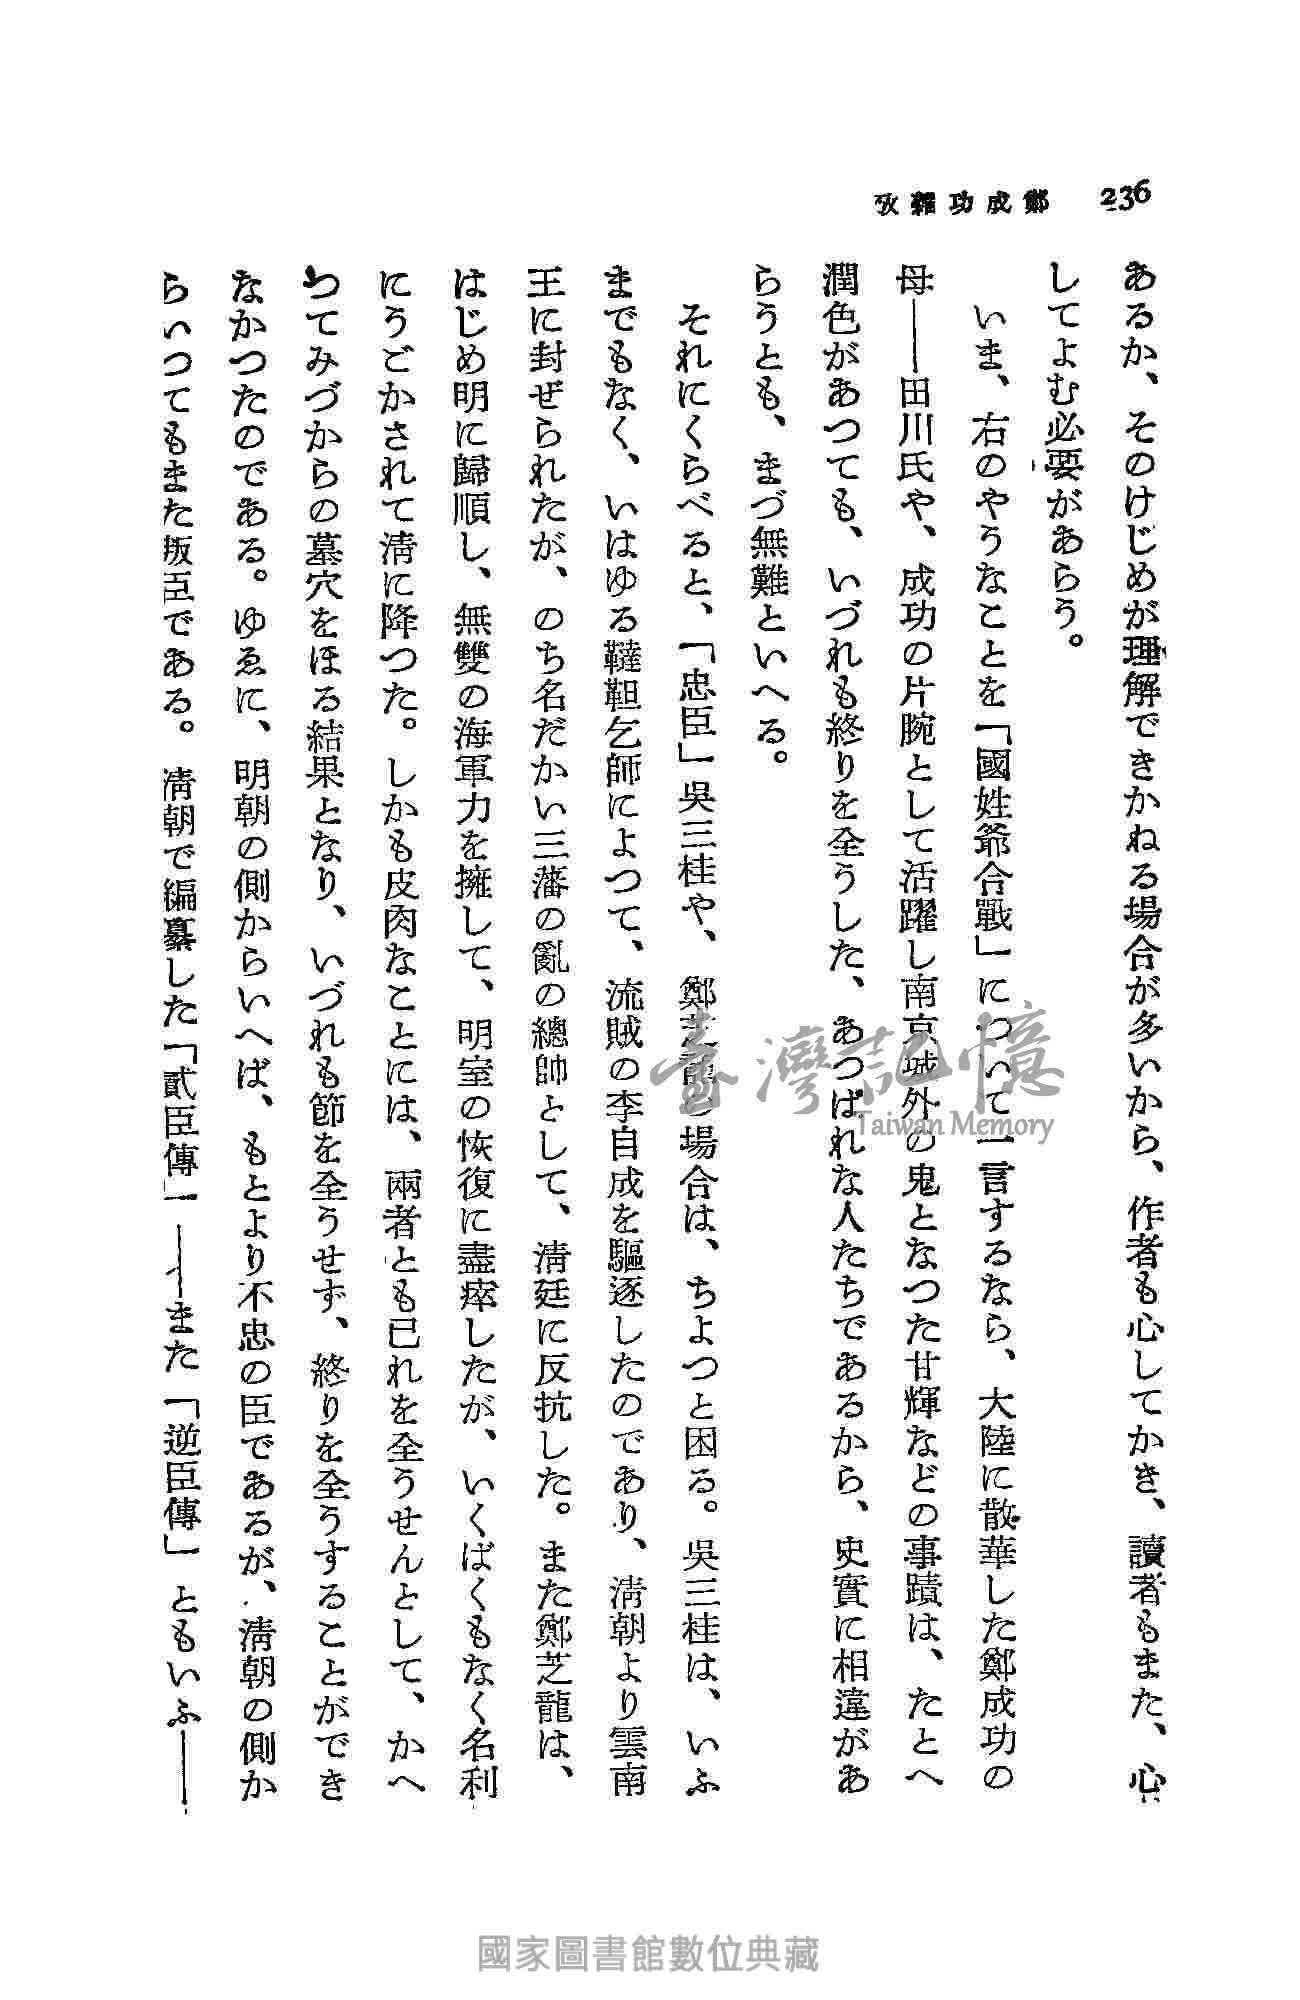 236 鄭成功雜攷
あるか、そのけじめが理解できかねる場合が多いから、作者も心してかき、讀者もまた、心
してよむ必要があらう。
いま、右のやうなことを「國姓爺合戰」について一言するなら、大陸に散華した鄭成功の
母――田川氏や、成功の片腕として活躍し南京城外の鬼となつた甘輝などの事蹟は、たとへ
潤色があつても、いづれも終りを全うした、あつぱれな人たちであるから、史實に相違があ
らうとも、まづ無難といへる。
それにくらべると、「忠臣」吳三桂や、鄭芝龍の場合は、ちよつと困る。吳三桂は、いふ
までもなく、いはゆる韃靼乞師によつて、流賊の李自成を驅逐したのであり、淸朝より雲南
王に封ぜられたが、のち名だかい三藩の亂の總帥として、淸廷に反抗した。また鄭芝龍は、
はじめ明に歸順し、無雙の海軍力を擁して、明室の恢復に盡瘁したが、いくばくもなく名利
にうごかされて淸に降つた。しかも皮肉なことには、兩者とも已れを全うせんとして、かへ
つてみづからの墓穴をほる結果となり、いづれも節を全うせず、終りを全うすることができ
なかつたのである。ゆゑに、明朝の側からいへば、もとより不忠の臣であるが、淸朝の側か
らいつてもまた叛臣である。淸朝で編纂した「貳臣傳」――また「逆臣傳」ともいふ――
臺灣記憶
Taiwan Memory
國家圖書館數位典藏